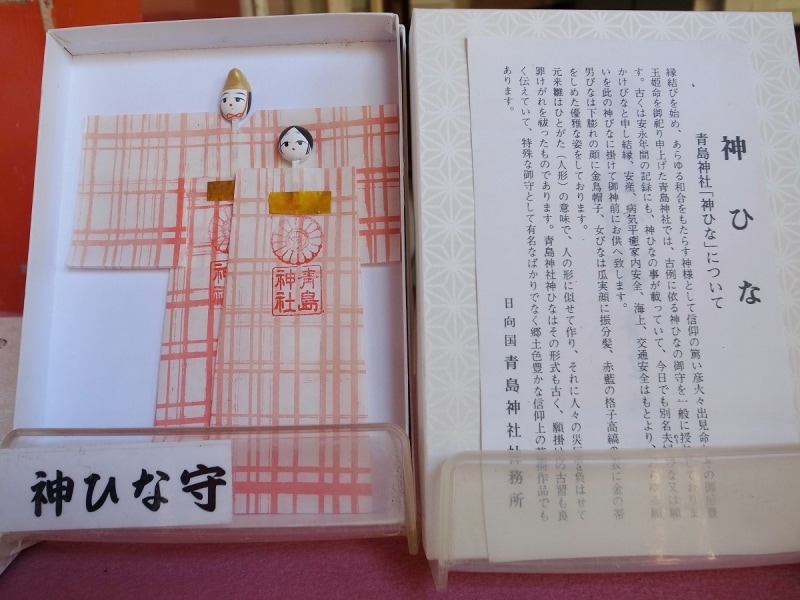 神ひな守
青島
神社
神社
神ひな
青島神社「神ひな」について
縁結びを始め、あらゆる和合をもたらす神様として信仰の篤い彦火々出見命
王姫命を御祀り申上げた青島神社では、古例に依る神ひなの御守を一般に授
す。古くは安永年間の記録にも、神ひなの事が載っていて、今日でも別名夫
かけびなと申し結縁、安産、病気平癒家内安全、海上、交通安全はもとより、
いを此の神びなに掛けて御神前にお供へ致します。
男びなは下膨れの顔に金烏帽子、女びなは瓜実顔に振分髪、赤藍の格子高縞の衣に金の帯
をしめた優雅な姿をしております。
元来雛はひとがた（人形）の意味で、人の形に似せて作り、それに人々の災厄を負はせて
罪けがれを祓ったものであります。青島神社神ひなはその形式も古く、願掛けの古習も良
く伝えていて、特殊な御守として有名なばかりでなく郷土色豊かな信仰上の芸術作品でも
あります。
日向国青島神社社務所